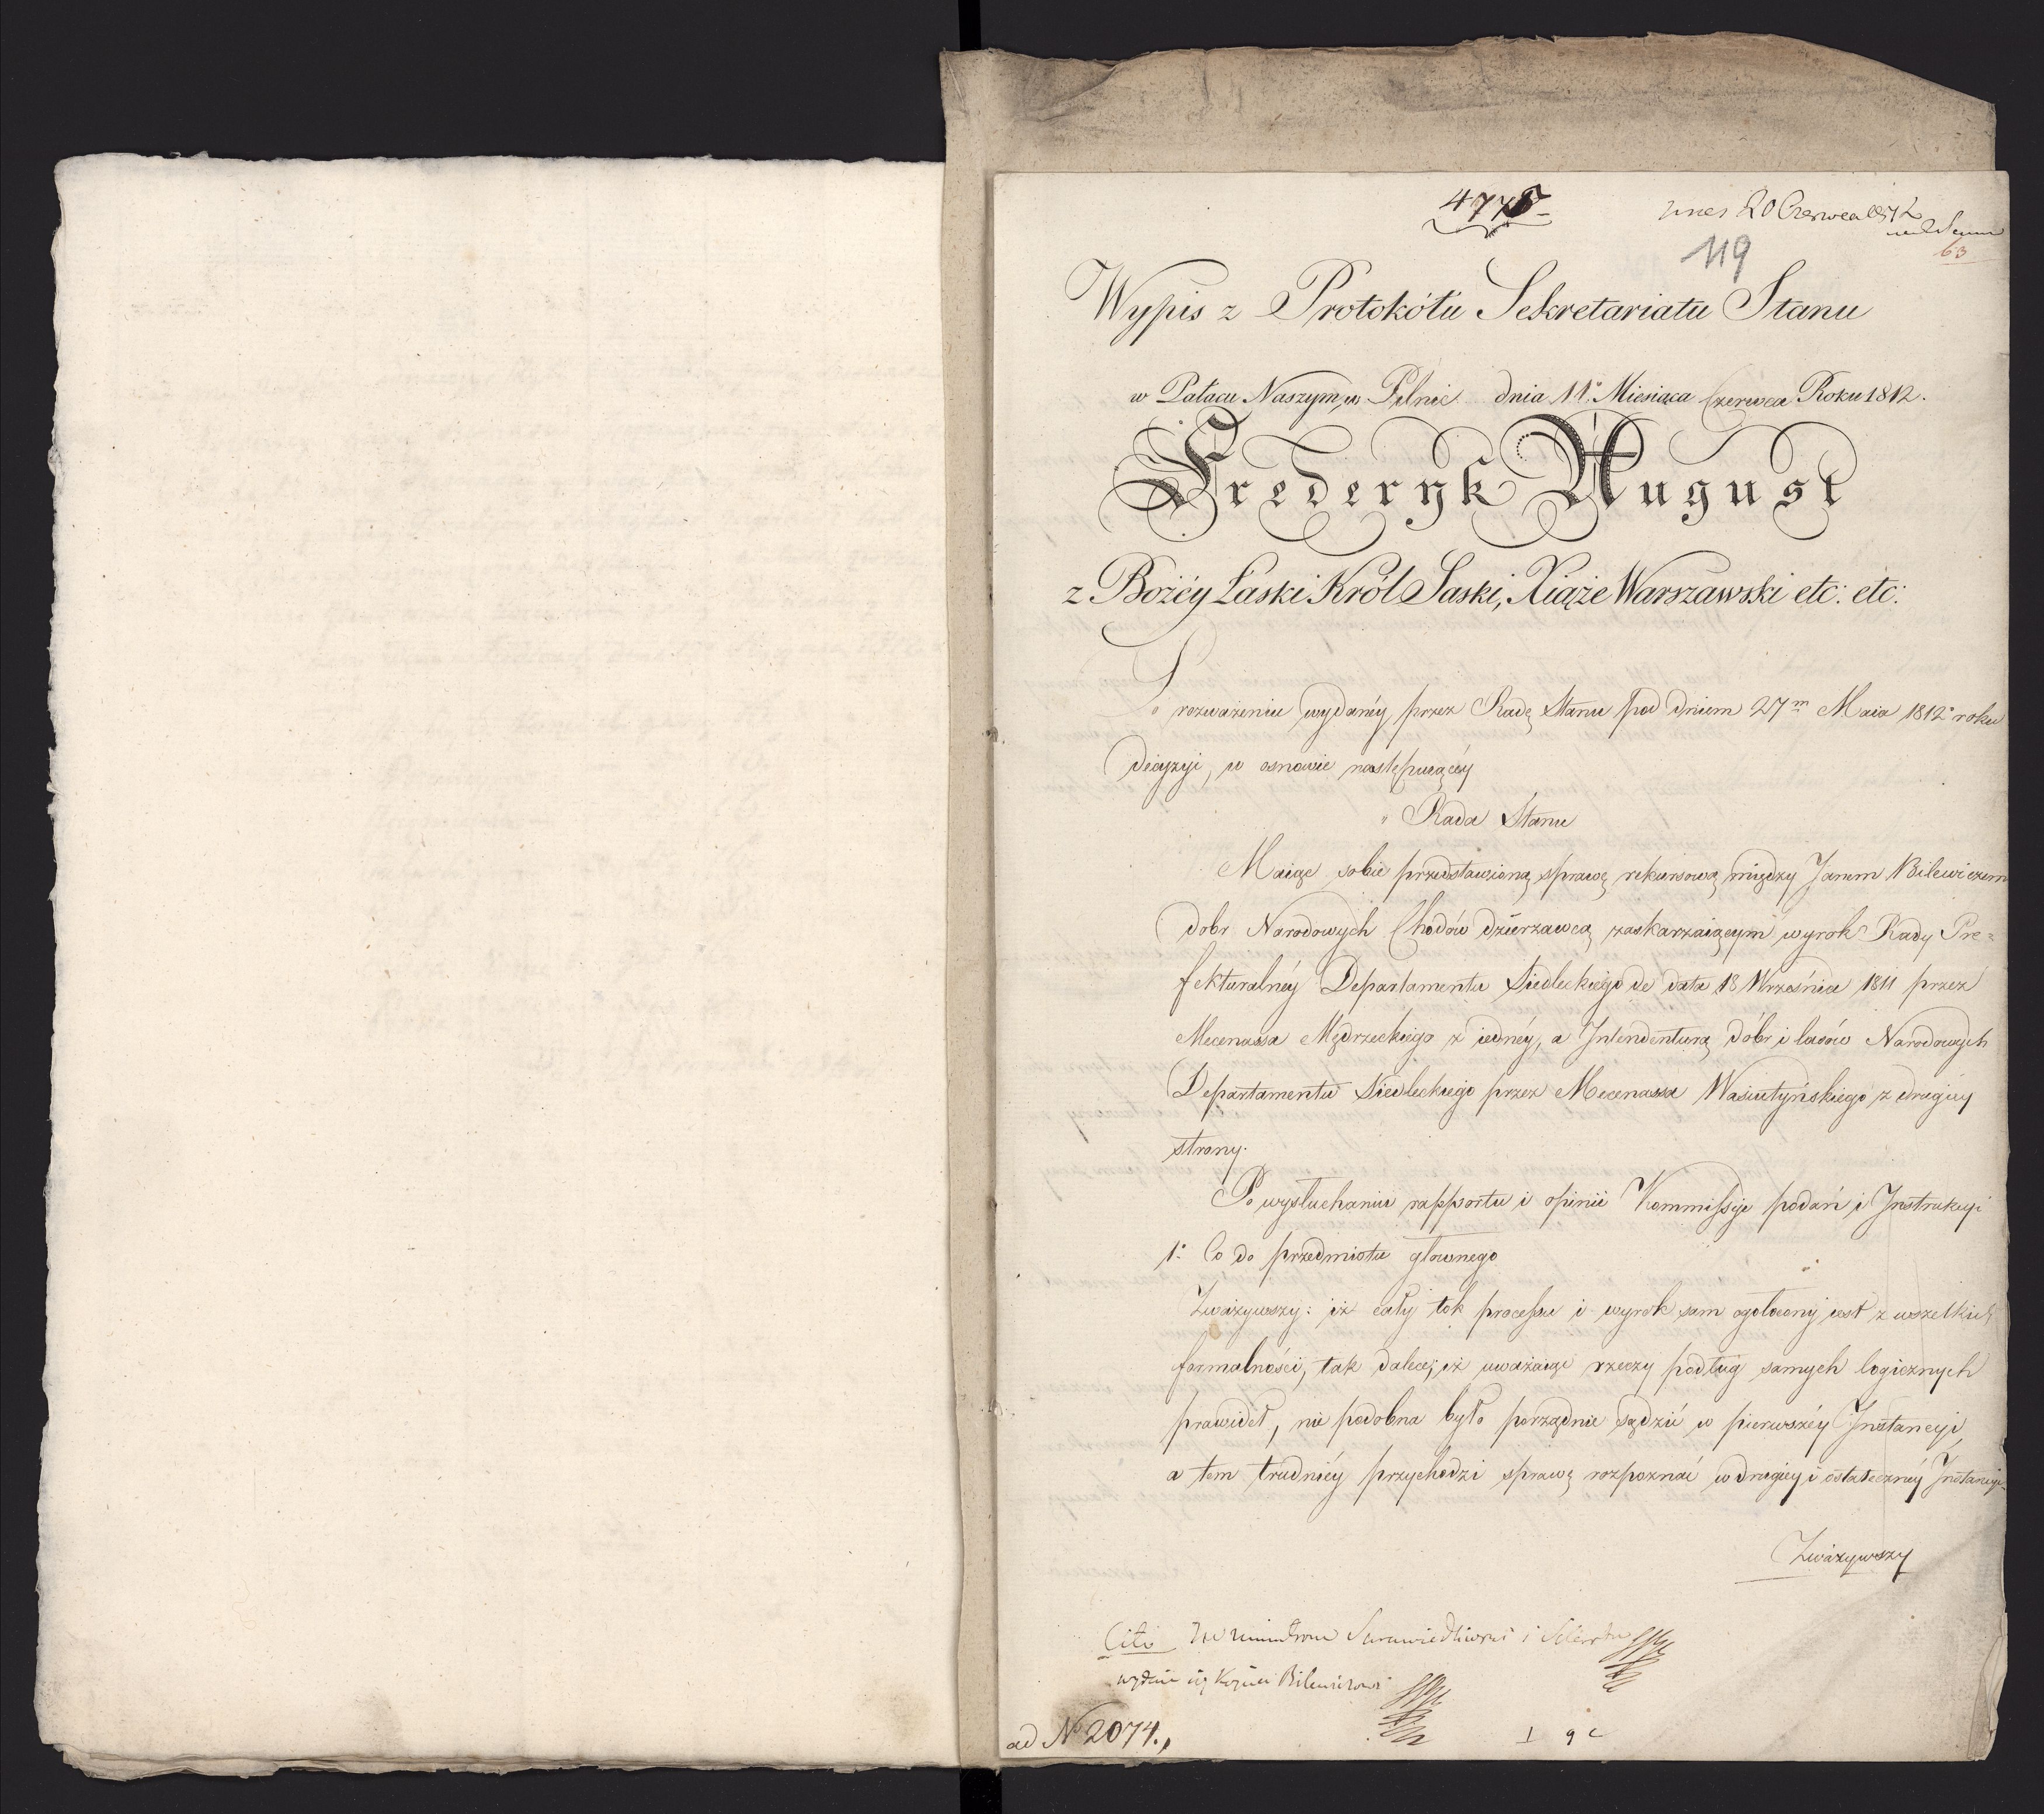 4778
20 Czerwca 1812
119
63
Wypis z Protokółu Sekretariatu Stanu
w Pałacu Naszym, w Pilnic dnia 11º Miesiąca Czerwca Roku 1812.
Frederyk August
z Bożéy Łaski Król Saski, Xiąże Warszawski etc: etc:
Po rozważeniu wydanéy przez Radę Stanu pod dniem 27m Maia 1812º roku
decyzyi, w osnowie następuiącéy
" Rada Stanu
Maiąc sobie przedstawioną sprawę rekursową między Janem Bilewiczem
dobr Narodowych Chodów dzierzawcą zaskarzaiącym wyrok Rady Pre=
fekturalnéy Departamentu Siedleckiego de data 18 Września 1811 przez
Mecenassa Mędrzeckiego z iednéy, a Intendenturą dóbr i lasów Narodowych
Departamentu Siedleckiego przez Mecenassa Wasiutyńskiego z drugiéy
strony.
Po wysłuchaniu rapportu i opinii Kommissyi podań i Instrukcyi
1º Co do przedmiotu głownego
Zważywszy: iż cały tok processu i wyrok sam ogołocony iest z wszelkich
formalności, tak dalece, iż uważaiąc rzeczy podług samych logicznych
prawideł, nie podobna było porządnie sądzić w pierwszéy Instancyi,
a tem trudniéy przychodzi sprawę rozpoznać w drugiey i ostatecznéy Instancyi.
Zważywszy
Cito Sprawiedliwości i
Bilewiczowi
ad No 2074.